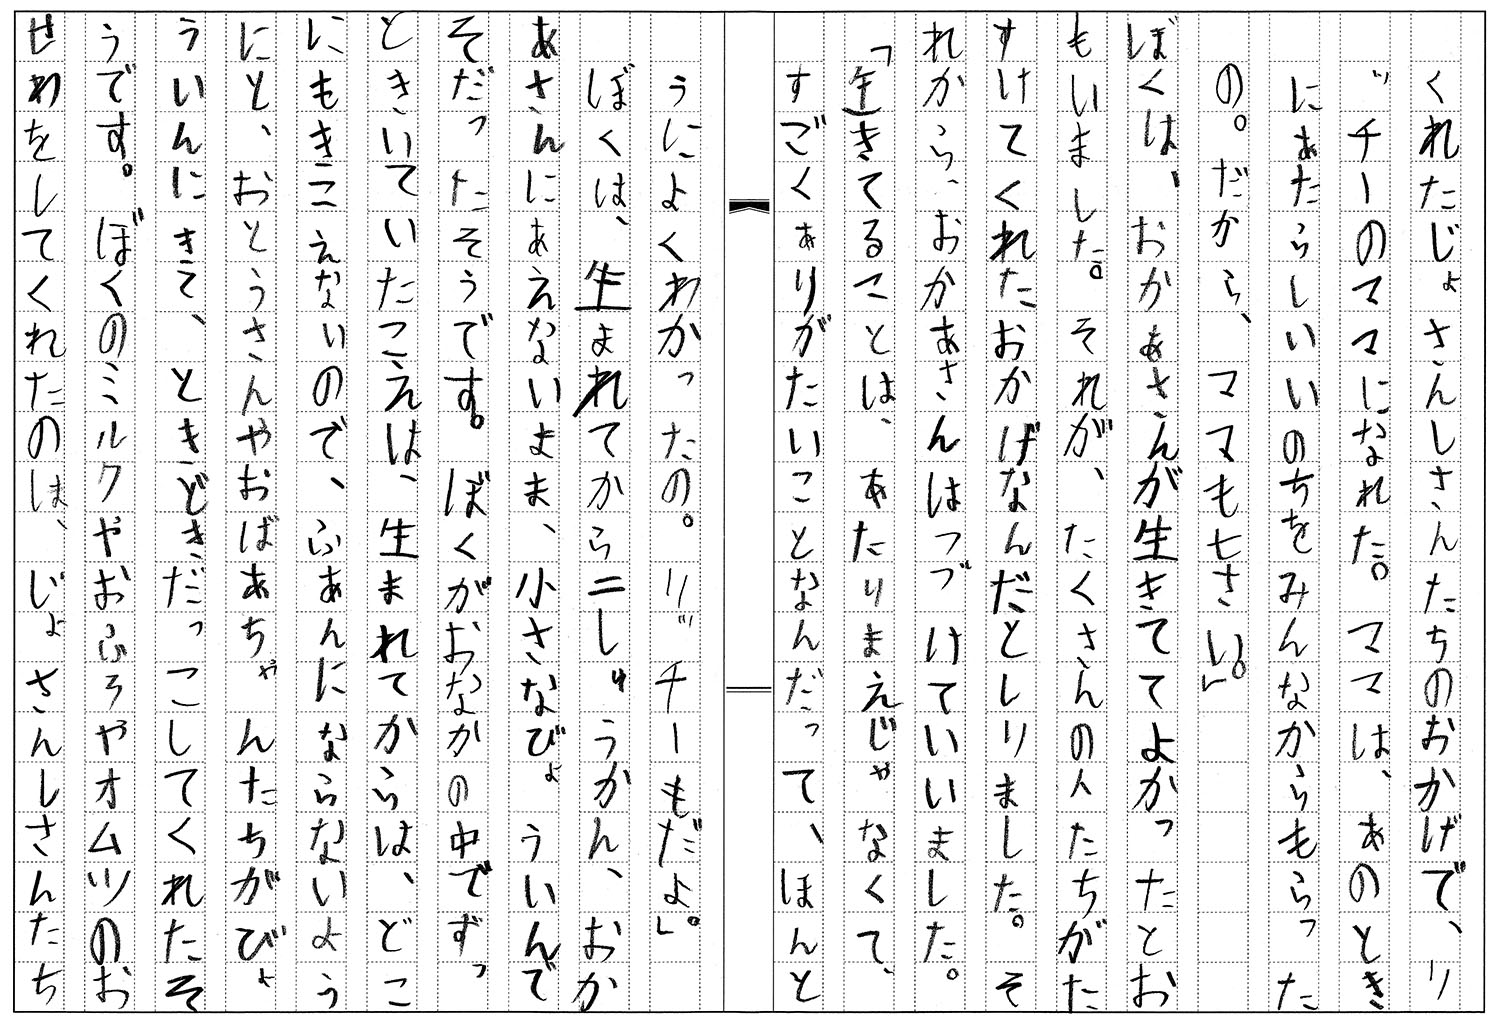 くれたじょさんしさんたちのおかげで、リ
ッチーのママになれた。ママは、あのとき
にあたらしいいのちをみんなからもらった
の。だから、ママも七さい。」
ぼくは、おかあさんが生きててよかったとお
もいました。それが、たくさんの人たちがた
すけてくれたおかげなんだとしりました。そ
れから、おかあさんはつづけていいました。
「生きてることは、あたりまえじゃなくて、
すごくありがたいことなんだって、ほんと
うによくわかったの。リッチーもだよ。」
ぼくは、生まれてから二しゅうかん、おか
あさんにあえないまま、小さなびょういんで
そだったそうです。ぼくがおなかの中でずっ
ときいていたこえは、生まれてからは、どこ
にもきこえないので、ふあんにならないよう
にと、おとうさんやおばあちゃんたちがびょ
ういんにきて、ときどきだっこしてくれたそ
うです。ぼくのミルクやおふろやオムツのお
せわをしてくれたのは、じょさんしさんたち